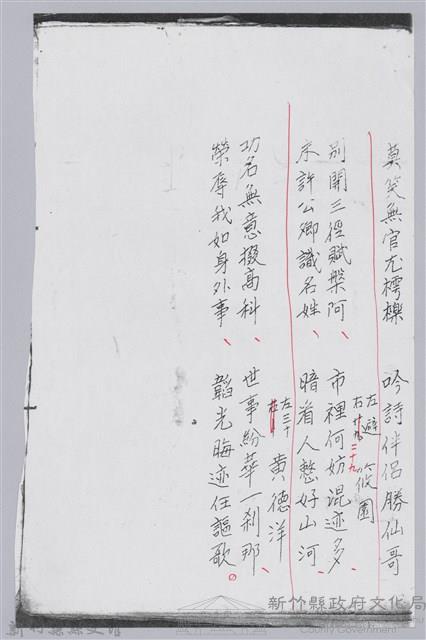 莫笑無官尤樗櫟　吟詩伴侶勝仙哥
左避　筱園
右十九 二十九
別開三徑賦槃阿、市裡何妨混迹多、
不許公卿識名姓、暗着人愁好山河、
左三十　黃德洋
功名無意掇高科、世事紛華一剎那、
榮辱我如身外事、韜光晦迹任謳歌。
新竹縣政府文化局
County Government
新竹縣縣史館